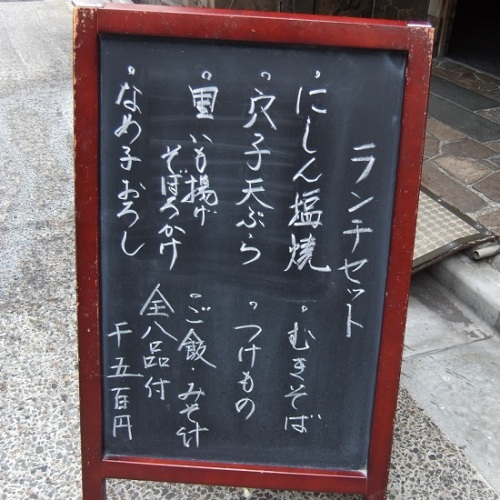 ランチセット
・にしん塩焼
・穴子天ぷら
・里いも揚げ
そぼろかけ
・なめ子おろし
・むきそば
・つけもの
・ご飯・みそ汁
全八品付
千五百円